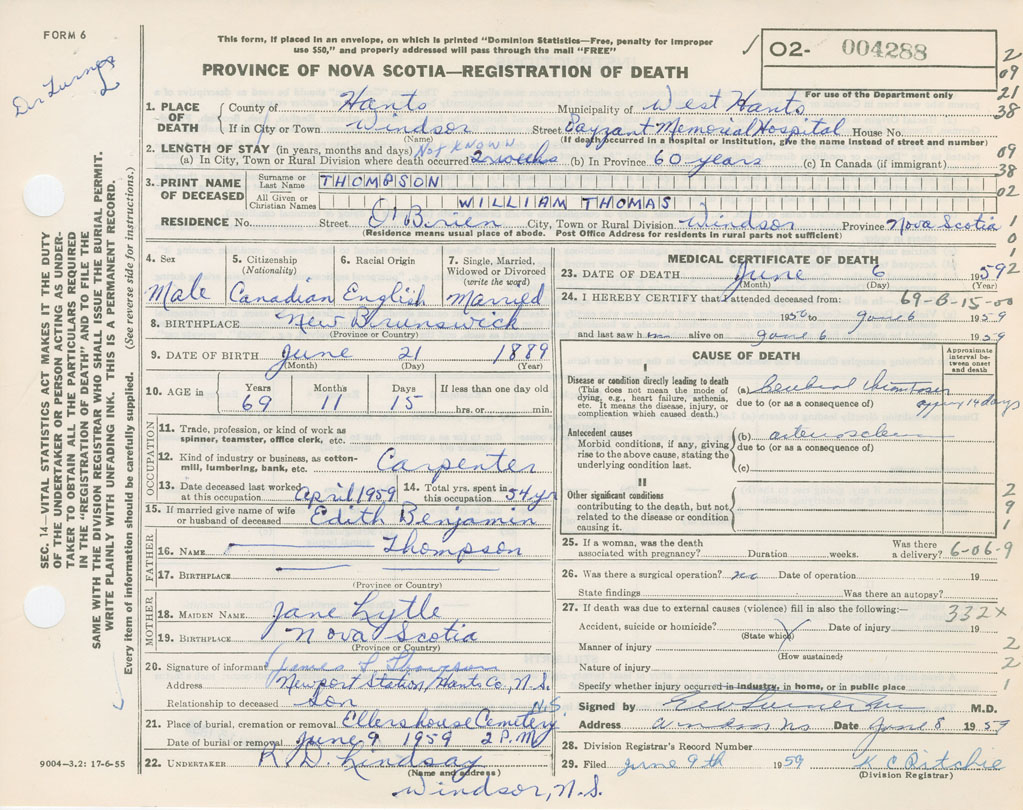 FORM 6
Dr Turner
This form, if placed in an envelope, on which is printed "Dominion Statistics—Free, penalty for improper
use $50," and properly addressed will pass through the mail "FREE"
PROVINCE OF NOVA SCOTIA—REGISTRATION OF DEATH
02- 004288
For use of the Department only
2
09
21
38
09
38
02
1
0
1
2
1. PLACE OF DEATH
County of Hants Municipality of West Hants
If in City or Town Windsor Street Payzant Memorial Hospital House No.
(Name) (If death occurred in a hospital or institution, give the name instead of street and number)
2. LENGTH OF STAY (in years, months and days) Not Known
(a) In City, Town or Rural Division where death occurred 2 weeks (b) In Province 60 years (c) In Canada (if immigrant)
3. PRINT NAME OF DECEASED
Surname or Last Name THOMPSON
All Given or Christian Names WILLIAM THOMAS
RESIDENCE No. Street O'Brien City, Town or Rural Division Windsor Province Nova Scotia
(Residence means usual place of abode. Post Office Address for residents in rural parts not sufficient)
4. Sex
Male
5. Citizenship (Nationality)
Canadian
6. Racial Origin
English
7. Single, Married, Widowed or Divorced (write the word)
Married
8. BIRTHPLACE New Brunswick
(Province or Country)
9. DATE OF BIRTH June 21 1889
(Month) (Day) (Year)
10. AGE in Years 69 Months 11 Days 15 If less than one day old
hrs. or min.
OCCUPATION
11. Trade, profession, or kind of work as
spinner, teamster, office clerk, etc.
12. Kind of industry or business, as cotton-
mill, lumbering, bank, etc. Carpenter
13. Date deceased last worked at this occupation April 1959
14. Total yrs. spent in this occupation 54 yr
15. If married give name of wife
or husband of deceased Edith Benjamin
FATHER
16. NAME Thompson
17. BIRTHPLACE
(Province or Country)
MOTHER
18. MAIDEN NAME Jane Lytle
19. BIRTHPLACE Nova Scotia
(Province or Country)
20. Signature of informant James Thompson
Address Newport Station, Hants Co., N.S.
Relationship to deceased Son
21. Place of burial, cremation or removal Ellershouse Cemetery, N.S.
Date of burial or removal June 9 1959 2 P.M.
22. UNDERTAKER R.D. Lindsay
(Name and address)
Windsor, N.S.
MEDICAL CERTIFICATE OF DEATH
23. DATE OF DEATH June 6 1959
(Month) (Day) (Year)
24. I HEREBY CERTIFY that I attended deceased from: 69-B-15-00
1956 to June 6 1959
and last saw him alive on June 6 1959
CAUSE OF DEATH
Approximate interval between onset and death
I
Disease or condition directly leading to death
(This does not mean the mode of
dying, e.g., heart failure, asthenia,
etc. It means the disease, injury, or
complication which caused death.)
(a) Cerebral Thrombosis
due to (or as a consequence of)
14 days
Antecedent causes
Morbid conditions, if any, giving
rise to the above cause, stating the
underlying condition last.
(b)
due to (or as a consequence of)
(c)
II
Other significant conditions
contributing to the death, but not
related to the disease or condition
causing it.
2
9
1
25. If a woman, was the death
associated with pregnancy? Duration weeks. Was there a delivery? 6-06-9
26. Was there a surgical operation? no Date of operation 19
State findings Was there an autopsy?
27. If death was due to external causes (violence) fill in also the following:—
332X
Accident, suicide or homicide? Date of injury 19
(State which)
Manner of injury 2
(How sustained)
Nature of injury 2
Specify whether injury occurred in industry, in home, or in public place 1
Signed by M.D.
Address Windsor NS Date June 8 1959
28. Division Registrar's Record Number
29. Filed June 9th 1959 K C Ritchie
(Division Registrar)
SEC. 14—VITAL STATISTICS ACT MAKES IT THE DUTY
OF THE UNDERTAKER OR PERSON ACTING AS UNDER-
TAKER TO OBTAIN ALL THE PARTICULARS REQUIRED
IN THE "REGISTRATION OF DEATH" AND TO FILE THE
SAME WITH THE DIVISION REGISTRAR WHO SHALL ISSUE THE BURIAL PERMIT.
WRITE PLAINLY WITH UNFADING INK. THIS IS A PERMANENT RECORD.
Every item of information should be carefully supplied. (See reverse side for instructions.)
9004—3.2: 17-6-55